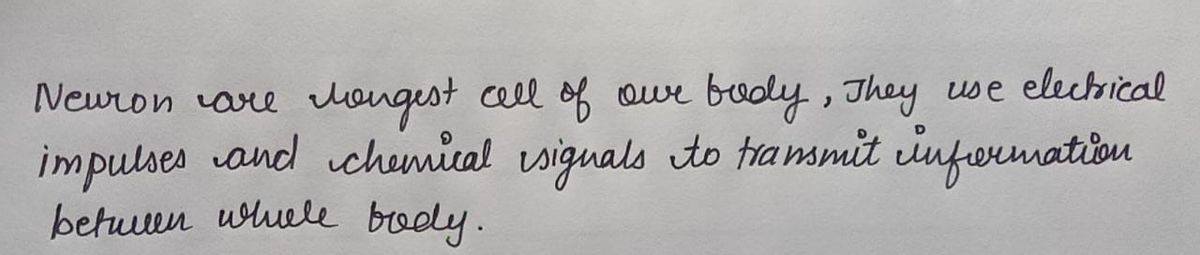 Neuron are longest cell of our body, They use electrical
impulses and chemical signals to transmit information
between whole body.